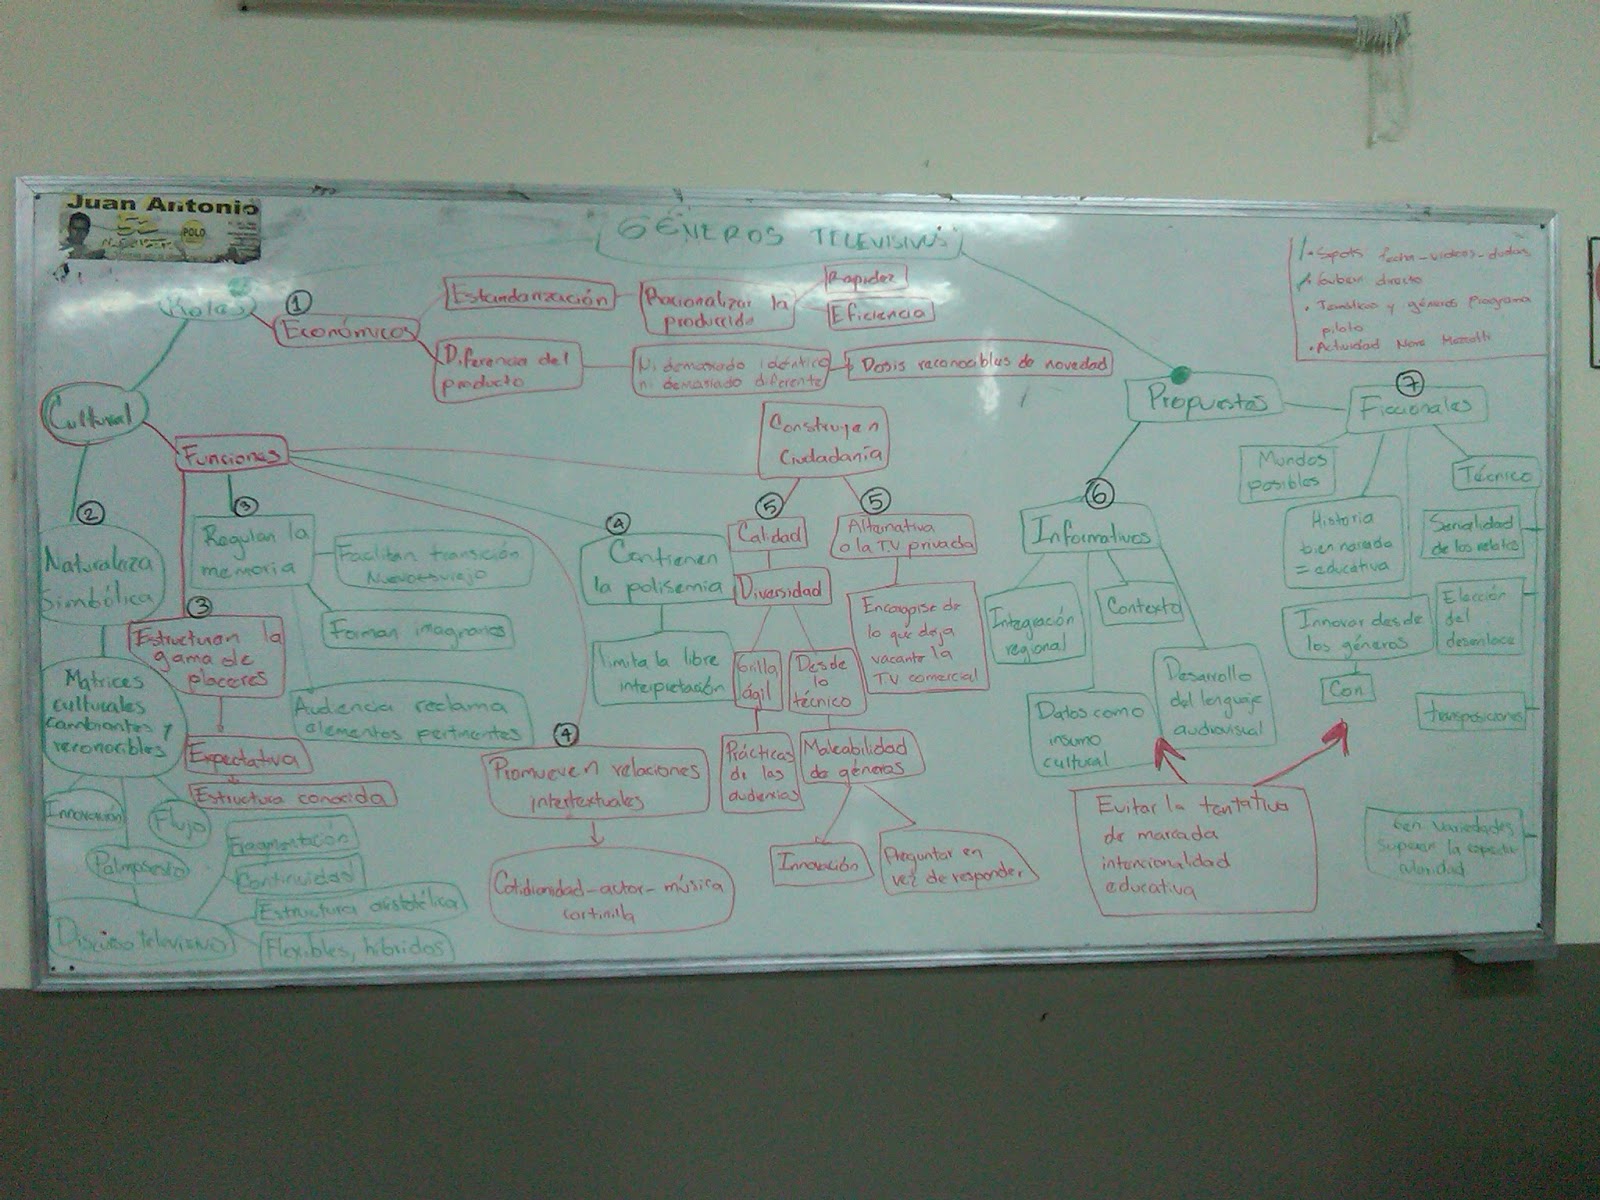 Juan Antonio
POLO
GÉNEROS TELEVISIVOS
Roles
1
Económicos
Estandarización
Racionalizar la
producción
Rapidez
Eficiencia
Diferencia del
producto
Ni demasiado idéntico
ni demasiado diferente
Dosis reconocibles de novedad
1. Spots fecha-videos-dudas
directo
• Temáticas y géneros Programa
piloto
• Actividad Nora
Cultural
Funciones
Construyen
Ciudadanía
Propuestas
7
Ficcionales
2
Naturaleza
Simbólica
Matrices
culturales
cambiantes y
reconocibles
Innovación
Flujo
Palimpsesto
Discurso televisivo
Fragmentación
Continuidad
Estructura aristotélica
Flexibles, híbridos
3
Regulan la
memoria
Facilitan transición
Nuevo viejo
Forman imaginarios
Audiencia reclama
elementos pertinentes
3
Estructuran la
gama de
placeres
Expectativa
Estructura conocida
4
Contienen
la polisemia
limita la libre
interpretación
4
Promueven relaciones
intertextuales
Cotidianidad-actor-música
cortinilla
5
Calidad
Diversidad
Grilla
ágil
Prácticas
de las
audiencias
Desde
lo
técnico
Maleabilidad
de géneros
Innovación
Preguntar en
vez de responder
5
Alternativa
a la TV privada
Encargarse de
lo que deja
vacante la
TV comercial
6
Informativos
Integración
regional
Contexto
Datos como
insumo
cultural
Desarrollo
del lenguaje
audiovisual
Evitar la tentativa
de marcada
intencionalidad
educativa
Mundos
posibles
Historia
bien narrada
= educativa
Innovar desde
los géneros
Con
Técnico
Serialidad
de los relatos
Elección
del
desenlace
transposiciones
variedades
Superan la